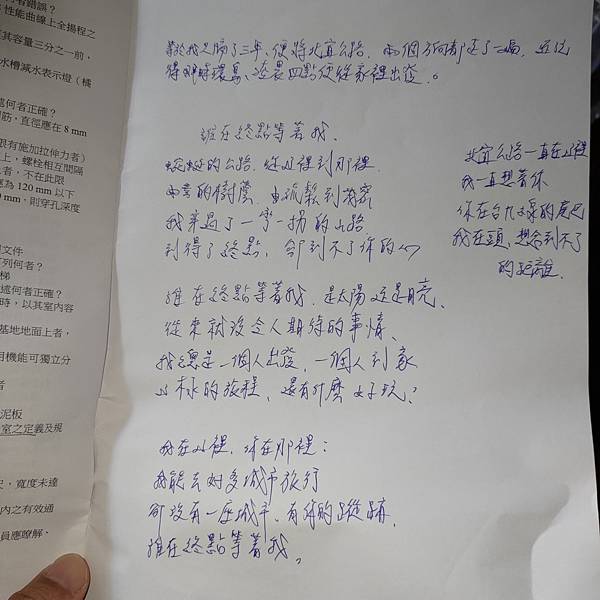 有錯誤？
性能曲線上全揚程之
其容量三分之一前，
水槽減水表示燈（橘
處何者正確？
筋，直徑應在 8 mm
限有施加拉伸力者）
上，螺栓相互間隔
者，不在此限
應為 120 mm 以下
mm，則穿孔深度
文件
列何者？
梯
處何者正確？
時，以其室內容
基地地面上者，
用機能可獨立分
者
泥板
室之定義及規
，寬度未達
內之有效通
員應瞭解，
了三年、便將北宜公路，兩個方向都走了一遍，並記
得那時環島、凌晨四點便從家裡出發。
誰在終點等著我、
蜿蜒的公路，從這裡到那裡，
的樹蔭，由到
我來過了一彎一拐的山路
到得了終點，卻到不了你的心
誰在終點等著我，是太陽還是月亮、
從來就沒令人期待的事情、
我總是一個人出發，一個人到家
的旅程，還有什麼好玩？
我在這裡，你在那裡；
我能去好多城市旅行
卻沒有一座城市、有你的蹤跡，
誰在終點等著我。
北宜公路一直在這裡
我一直想著你
你在台九線的尾巴
我在頭，想念到不了
的距離。